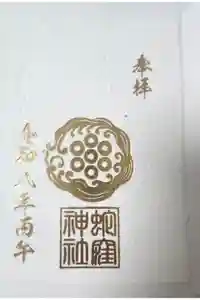 奉拝
蛇窪
神社
令和八年丙午